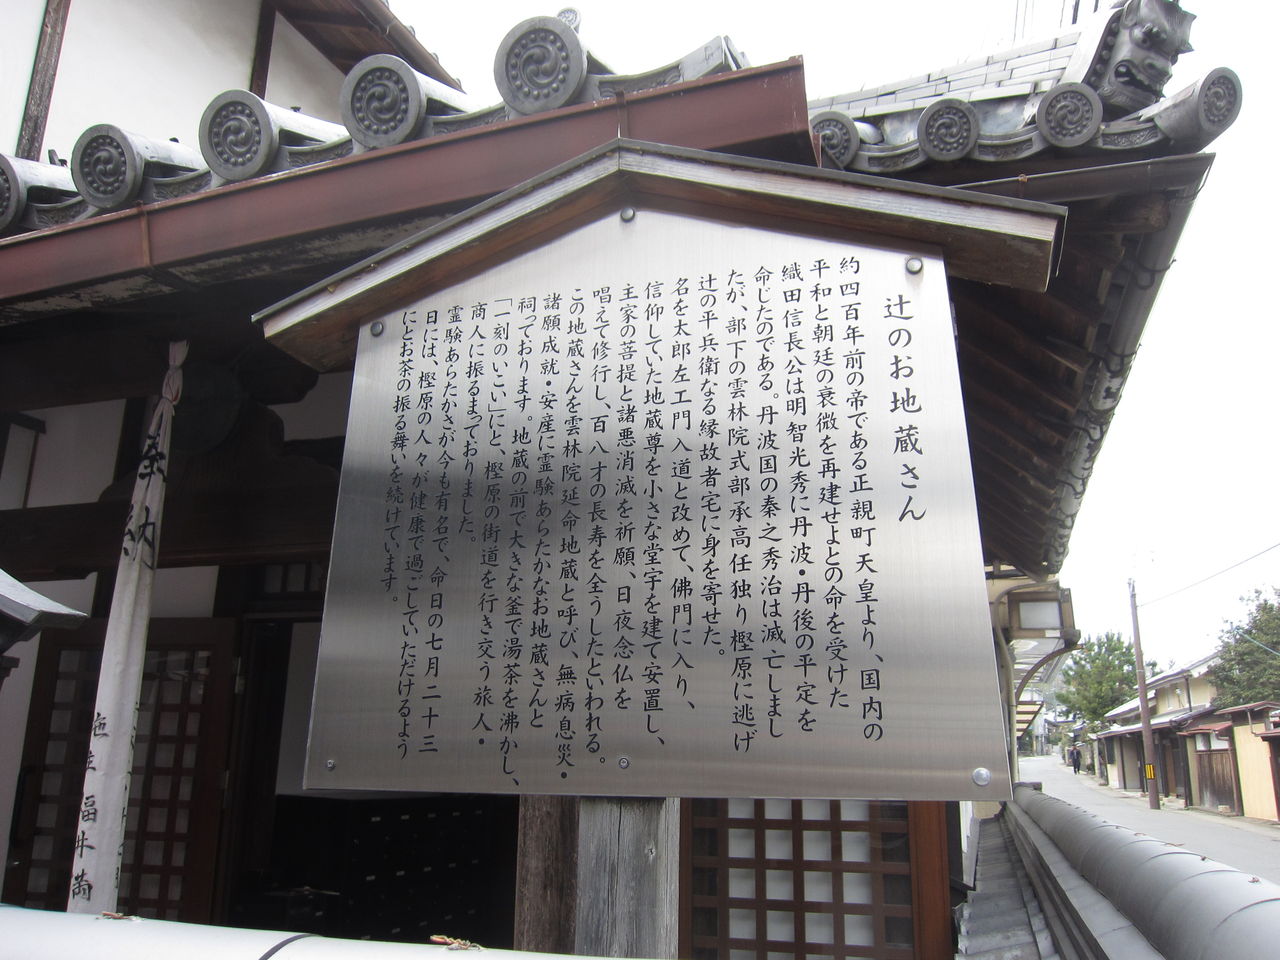 辻のお地蔵さん
約四百年前の帝である正親町天皇より、国内の
平和と朝廷の衰微を再建せよとの命を受けた
織田信長公は明智光秀に丹波・丹後の平定を
命じたのである。丹波国の秦之秀治は滅亡しまし
たが、部下の雲林院式部承高任独り樫原に逃げ
辻の平兵衛なる縁故者宅に身を寄せた。
名を太郎左エ門入道と改めて、佛門に入り、
信仰していた地蔵尊を小さな堂宇を建て安置し、
主家の菩提と諸悪消滅を祈願、日夜念仏を
唱えて修行し、百八才の長寿を全うしたといわれる。
この地蔵さんを雲林院延命地蔵と呼び、無病息災・
諸願成就・安産に霊験あらたかなお地蔵さんと
祠っております。地蔵の前で大きな釜で湯茶を沸かし、
「一刻のいこい」にと、樫原の街道を行き交う旅人・
商人に振るまっておりました。
霊験あらたかさが今も有名で、命日の七月二十三
日には、樫原の人々が健康で過ごしていただけるよう
にとお茶の振る舞いを続けています。
奉納
施主 福井